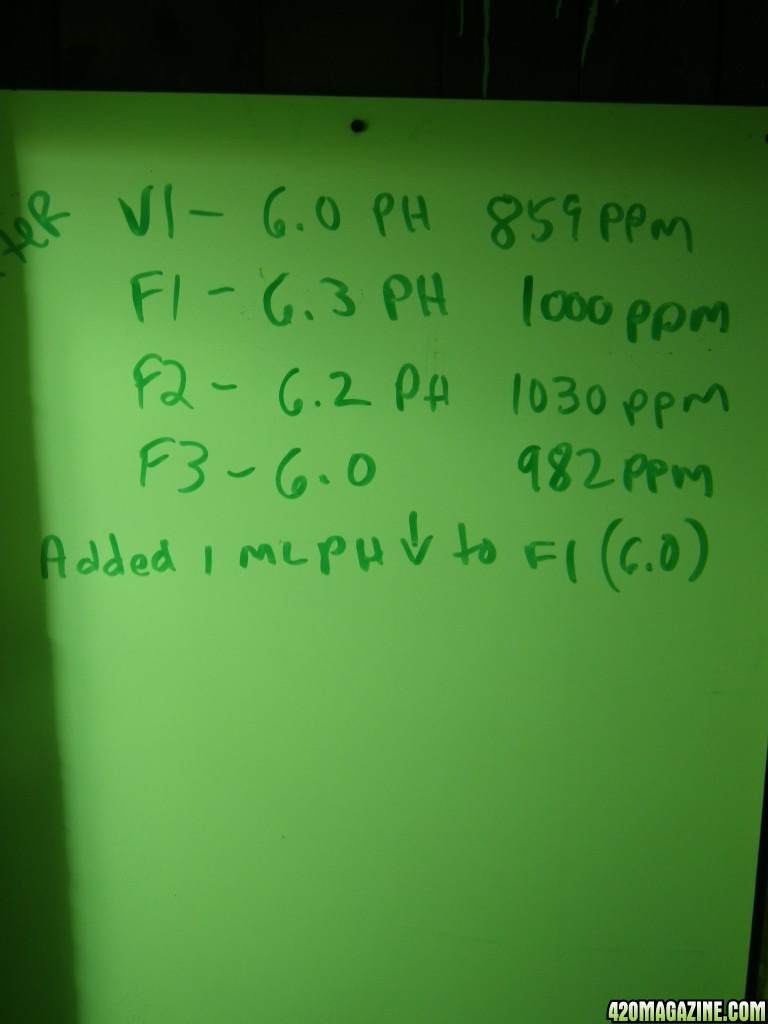 V1 - 6.0 PH 859 PPM
F1 - 6.3 PH 1000 ppm
F2 - 6.2 PH 1030 ppm
F3 - 6.0 982 PPM
Added 1 ML PH ↓ to F1 (6.0)
420MAGAZINE.COM